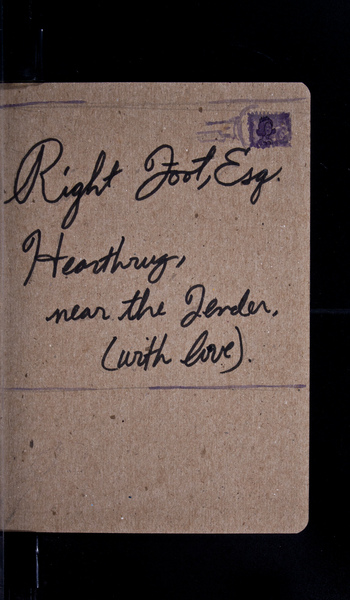 Right Foot, Esq.
Hearthrug,
near the Fender,
(with love).